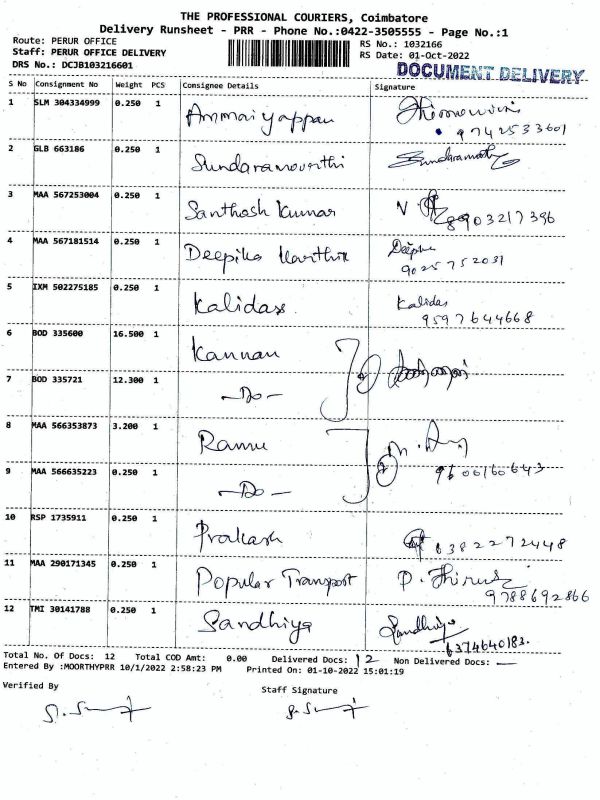 THE PROFESSIONAL COURIERS, Coimbatore
Delivery Runsheet - PRR - Phone No.:0422-3505555 - Page No.:1
Route: PERUR OFFICE RS No.: 1032166
Staff: PERUR OFFICE DELIVERY RS Date: 01-Oct-2022
DRS No.: DCJB103216601
DOCUMENT DELIVERY
S No Consignment No Weight PCS Consignee Details Signature
1 SLM 304334999 0.250 1 Ammaiyappan
9742533601
2 GLB 663186 0.250 1 Sundaramoorthi Sundaramoorthy
3 MAA 567253004 0.250 1 Santhosh Kumar
8903217396
4 MAA 567181514 0.250 1 Deepika Karthik Deepika
9025752031
5 IXM 502275185 0.250 1 Kalidass Kalidas
9597644668
6 BOD 335600 16.500 1 Kannan
7 BOD 335721 12.300 1 -Do-
8 MAA 566353873 3.200 1 Ramu
9600160643
9 MAA 566635223 0.250 1 -Do-
10 RSP 1735911 0.250 1 Prakash 6382272448
11 MAA 290171345 0.250 1 Popular Transport P.
9788692866
12 TMI 30141788 0.250 1 Sandhiya Sandhiya
6374640183.
Total No. Of Docs: 12 Total COD Amt: 0.00 Delivered Docs: 12 Non Delivered Docs: —
Entered By :MOORTHYPRR 10/1/2022 2:58:23 PM Printed On: 01-10-2022 15:01:19
Verified By Staff Signature